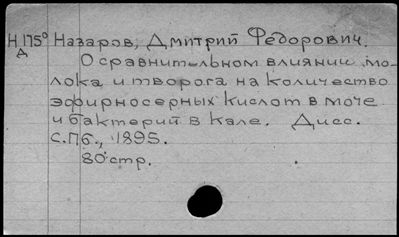 Н 175° Назаров, Дмитрий Федорович.
Д
О сравнительном влиянии мо-
лока и творога на количество
эфирносерных кислот в моче
и бактерий в кале. Дисс.
С.Пб., 1895.
80 стр.